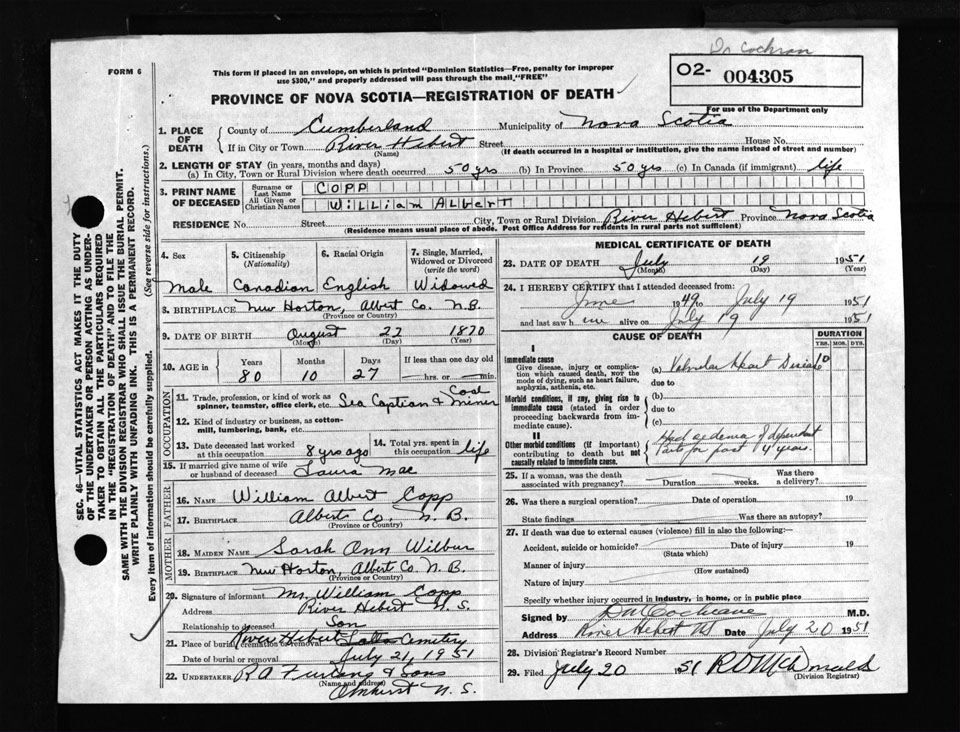 Dr Cochran
FORM 6
This form if placed in an envelope, on which is printed "Dominion Statistics—Free, penalty for improper
use $300," and properly addressed will pass through the mail "FREE"
02- 004305
For use of the Department only
PROVINCE OF NOVA SCOTIA—REGISTRATION OF DEATH
1. PLACE OF DEATH
County of Cumberland Municipality of Nova Scotia
If in City or Town River Hebert Street House No.
(Name) (If death occurred in a hospital or institution, give the name instead of street and number)
2. LENGTH OF STAY (in years, months and days)
(a) In City, Town or Rural Division where death occurred 50 yrs (b) In Province 50 yrs (c) In Canada (if immigrant) life
3. PRINT NAME OF DECEASED
Surname or Last Name COPP
All Given or Christian Names WILLIAM ALBERT
RESIDENCE No. Street City, Town or Rural Division River Hebert Province Nova Scotia
(Residence means usual place of abode. Post Office Address for residents in rural parts not sufficient)
4. Sex Male
5. Citizenship (Nationality) Canadian
6. Racial Origin English
7. Single, Married, Widowed or Divorced (write the word) Widowed
8. BIRTHPLACE New Horton, Albert Co. N.B.
(Province or Country)
9. DATE OF BIRTH August 27 1870
(Month) (Day) (Year)
10. AGE in Years 80 Months 10 Days 27 If less than one day old
hrs. or min.
OCCUPATION
11. Trade, profession, or kind of work as spinner, teamster, office clerk, etc. Sea Captian & Coal miner
12. Kind of industry or business, as cotton-mill, lumbering, bank, etc.
13. Date deceased last worked at this occupation 8 yrs ago
14. Total yrs. spent in this occupation life
15. If married give name of wife or husband of deceased Laura Mae
FATHER
16. NAME William Albert Copp
17. BIRTHPLACE Albert Co N.B.
(Province or Country)
MOTHER
18. MAIDEN NAME Sarah Ann Wilbur
19. BIRTHPLACE New Horton, Albert Co. N.B.
(Province or Country)
20. Signature of informant Mr William Copp
Address River Hebert N.S.
Relationship to deceased Son
21. Place of burial, cremation or removal River Hebert Cemetery
Date of burial or removal July 21, 1951
22. UNDERTAKER R A Furlong & Sons
(Name and address)
Amherst N.S.
MEDICAL CERTIFICATE OF DEATH
23. DATE OF DEATH July 19 1951
(Month) (Day) (Year)
24. I HEREBY CERTIFY that I attended deceased from:
June 1949 to July 19 1951
and last saw him alive on July 19 1951
CAUSE OF DEATH
DURATION
YRS. MOS. DYS.
I
Immediate cause
Give disease, injury or complication which caused death, NOT the mode of dying, such as heart failure, asphyxia, asthenia, etc.
(a) Valvular Heart Disease 10
due to
Morbid conditions, if any, giving rise to immediate cause (stated in order proceeding backwards from immediate cause).
(b)
due to
(c)
II
Other morbid conditions (if important) contributing to death but not causally related to immediate cause.
Had oedema of dependent
Parts for past 4 years.
25. If a woman, was the death associated with pregnancy? Duration weeks. Was there a delivery?
26. Was there a surgical operation? Date of operation 19
State findings Was there an autopsy?
27. If death was due to external causes (violence) fill in also the following:—
Accident, suicide or homicide? Date of injury 19
(State which)
Manner of injury
(How sustained)
Nature of injury
Specify whether injury occurred in industry, in home, or in public place
Signed by D M Cochrane M.D.
Address River Hebert NS Date July 20 1951
28. Division Registrar's Record Number
29. Filed July 20 51 R D McDonald
(Division Registrar)
SEC. 46—VITAL STATISTICS ACT MAKES IT THE DUTY
OF THE UNDERTAKER OR PERSON ACTING AS UNDER-
TAKER TO OBTAIN ALL THE PARTICULARS REQUIRED
IN THE "REGISTRATION OF DEATH" AND TO FILE THE
SAME WITH THE DIVISION REGISTRAR WHO SHALL ISSUE THE BURIAL PERMIT.
WRITE PLAINLY WITH UNFADING INK. THIS IS A PERMANENT RECORD.
Every item of information should be carefully supplied. (See reverse side for instructions.)